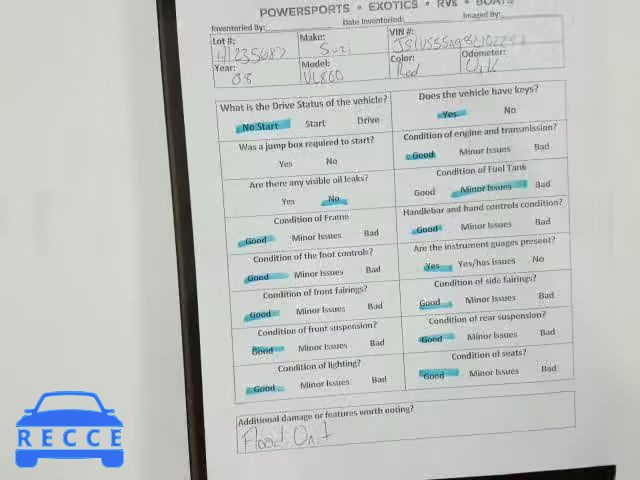 POWERSPORTS • EXOTICS • RVs • BOATS
Inventoried By: Date Inventoried: Imaged By:
Lot #: Make: VIN #:
41235687 Suzi
Year: Model: Color: Odometer:
08 VL800 Red Unk
What is the Drive Status of the vehicle? Does the vehicle have keys?
No Start Start Drive Yes No
Was a jump box required to start? Condition of engine and transmission?
Yes No Good Minor Issues Bad
Are there any visible oil leaks? Condition of Fuel Tank
Yes No Good Minor Issues Bad
Condition of Frame Handlebar and hand controls condition?
Good Minor Issues Bad Good Minor Issues Bad
Condition of the foot controls? Are the instrument guages present?
Good Minor Issues Bad Yes Yes/has issues No
Condition of front fairings? Condition of side fairings?
Good Minor Issues Bad Good Minor Issues Bad
Condition of front suspension? Condition of rear suspension?
Good Minor Issues Bad Good Minor Issues Bad
Condition of lighting? Condition of seats?
Good Minor Issues Bad Good Minor Issues Bad
Additional damage or features worth noting?
Flood Unit
RECCE